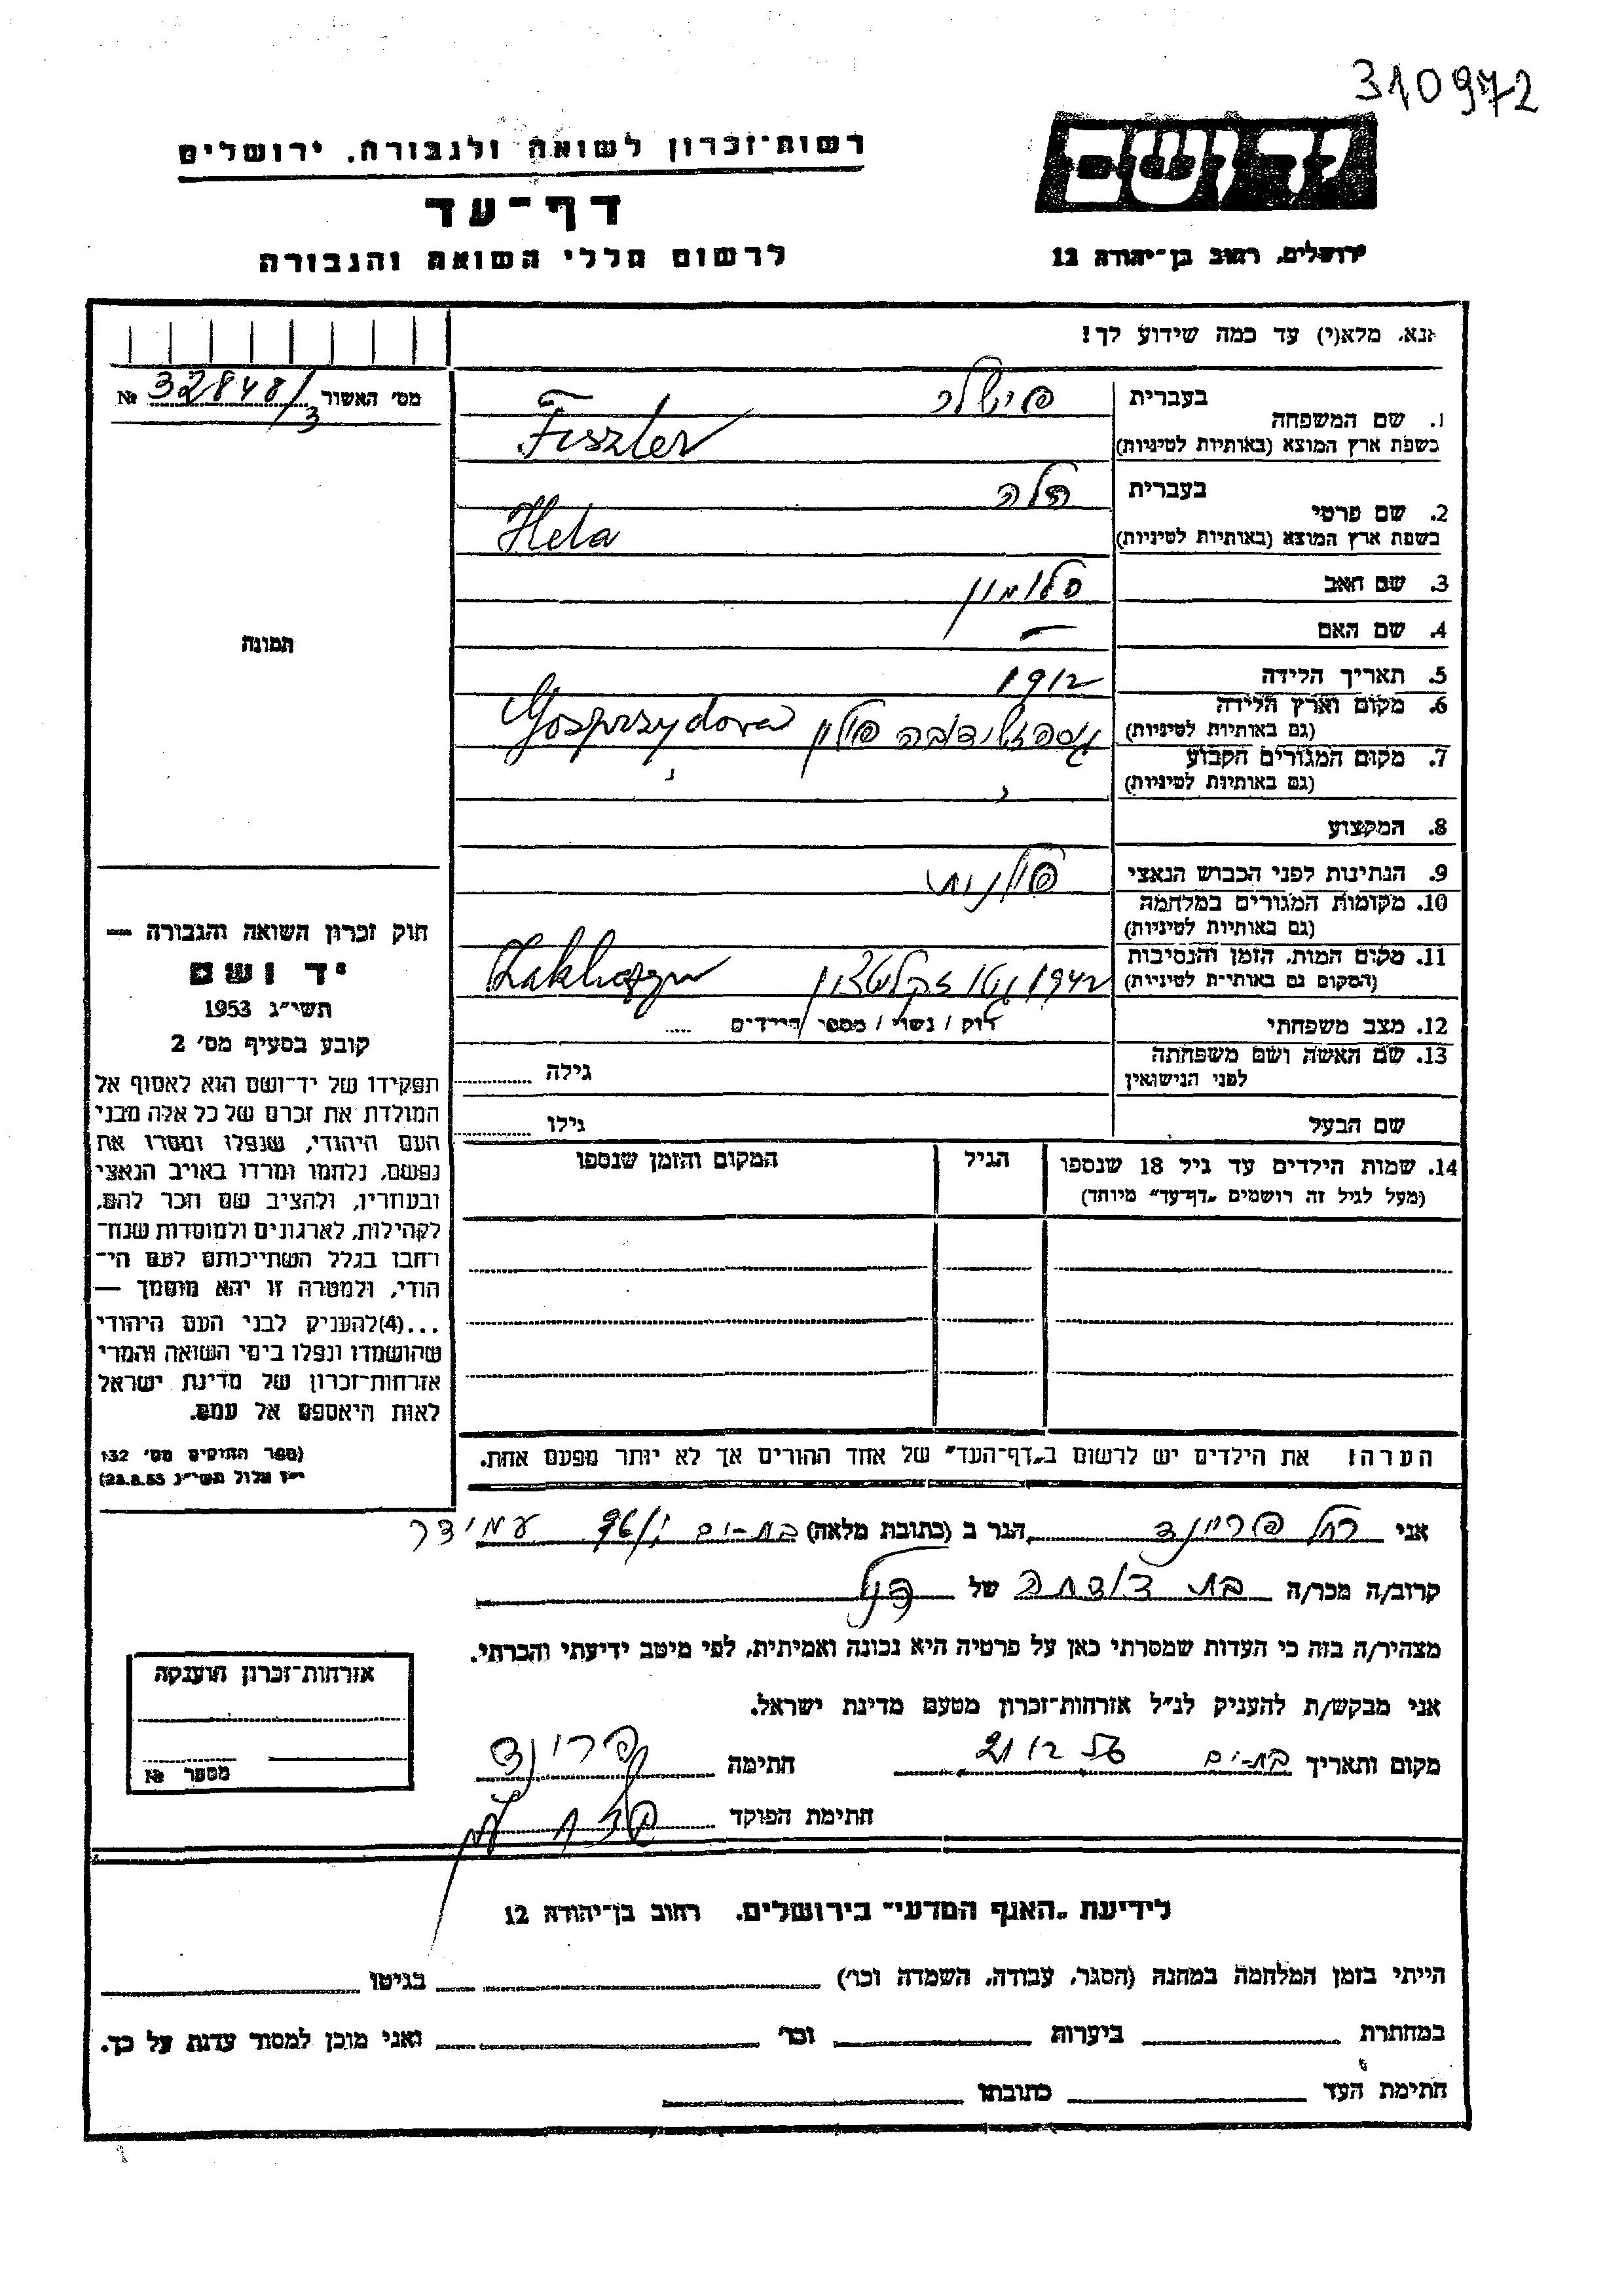 310972
יד ושם
רשות־זכרון לשואה ולגבורה, ירושלים
דף־עד
לרשום חללי השואה והגבורה
ירושלים, רחוב בן־יהודה 12
אנא, מלא(י) עד כמה שידוע לך!
מס׳ האשור 32848/3 №
1. שם המשפחה
בעברית פישלר
בשפת ארץ המוצא (באותיות לטיניות) Fiszler
2. שם פרטי
בעברית הלה
בשפת ארץ המוצא (באותיות לטיניות) Hela
3. שם האב סלומון
4. שם האם —
5. תאריך הלידה 1912
6. מקום וארץ הלידה
(גם באותיות לטיניות) פולין
7. מקום המגורים הקבוע
(גם באותיות לטיניות)
8. המקצוע
9. הנתינות לפני הכבוש הנאצי פולנית
10. מקומות המגורים במלחמה
(גם באותיות לטיניות)
11. מקום המות, הזמן והנסיבות
(המקום גם באותיות לטיניות) 1942 גטו
12. מצב משפחתי רווק / נשוי / מספר הילדים .....
13. שם האשה ושם משפחתה
לפני הנישואין
גילה
שם הבעל
גילו
14. שמות הילדים עד גיל 18 שנספו
(מעל לגיל זה רושמים „דף־עד" מיוחד)
הגיל
המקום והזמן שנספו
הערה: את הילדים יש לרשום ב„דף־העד" של אחד ההורים אך לא יותר מפעם אחת.
תמונה
חוק זכרון השואה והגבורה —
יד ושם
תשי״ג 1953
קובע בסעיף מס׳ 2
תפקידו של יד־ושם הוא לאסוף אל
המולדת את זכרם של כל אלה מבני
העם היהודי, שנפלו ומסרו את
נפשם, נלחמו ומרדו באויב הנאצי
ובעוזריו, ולהציב שם וזכר להם,
לקהילות, לארגונים ולמוסדות שנח־
רבו בגלל השתייכותם לעם הי־
הודי, ולמטרה זו יהא מוסמך —
...(4)להעניק לבני העם היהודי
שהושמדו ונפלו בימי השואה והמרי
אזרחות־זכרון של מדינת ישראל
לאות היאספם אל עמם.
(ספר החוקים מס׳ 132
י״ז אלול תשי״ג 28.8.53)
אני רחל פריינד הגר ב (כתובת מלאה) בת-ים עמידר
קרוב/ה מכר/ה בת דודתה של הנ״ל
מצהיר/ה בזה כי העדות שמסרתי כאן על פרטיה היא נכונה ואמיתית, לפי מיטב ידיעתי והכרתי.
אני מבקש/ת להעניק לנ״ל אזרחות־זכרון מטעם מדינת ישראל.
מקום ותאריך בת-ים 21 12 56 חתימה
חתימת הפוקד
אזרחות־זכרון הוענקה
מספר №
לידיעת „האגף המדעי" בירושלים, רחוב בן־יהודה 12
הייתי בזמן המלחמה במחנה (הסגר, עבודה, השמדה וכו׳) בגיטו
במחתרת ביערות וכו׳ ואני מוכן למסור עדות על כך.
חתימת העד כתובתו